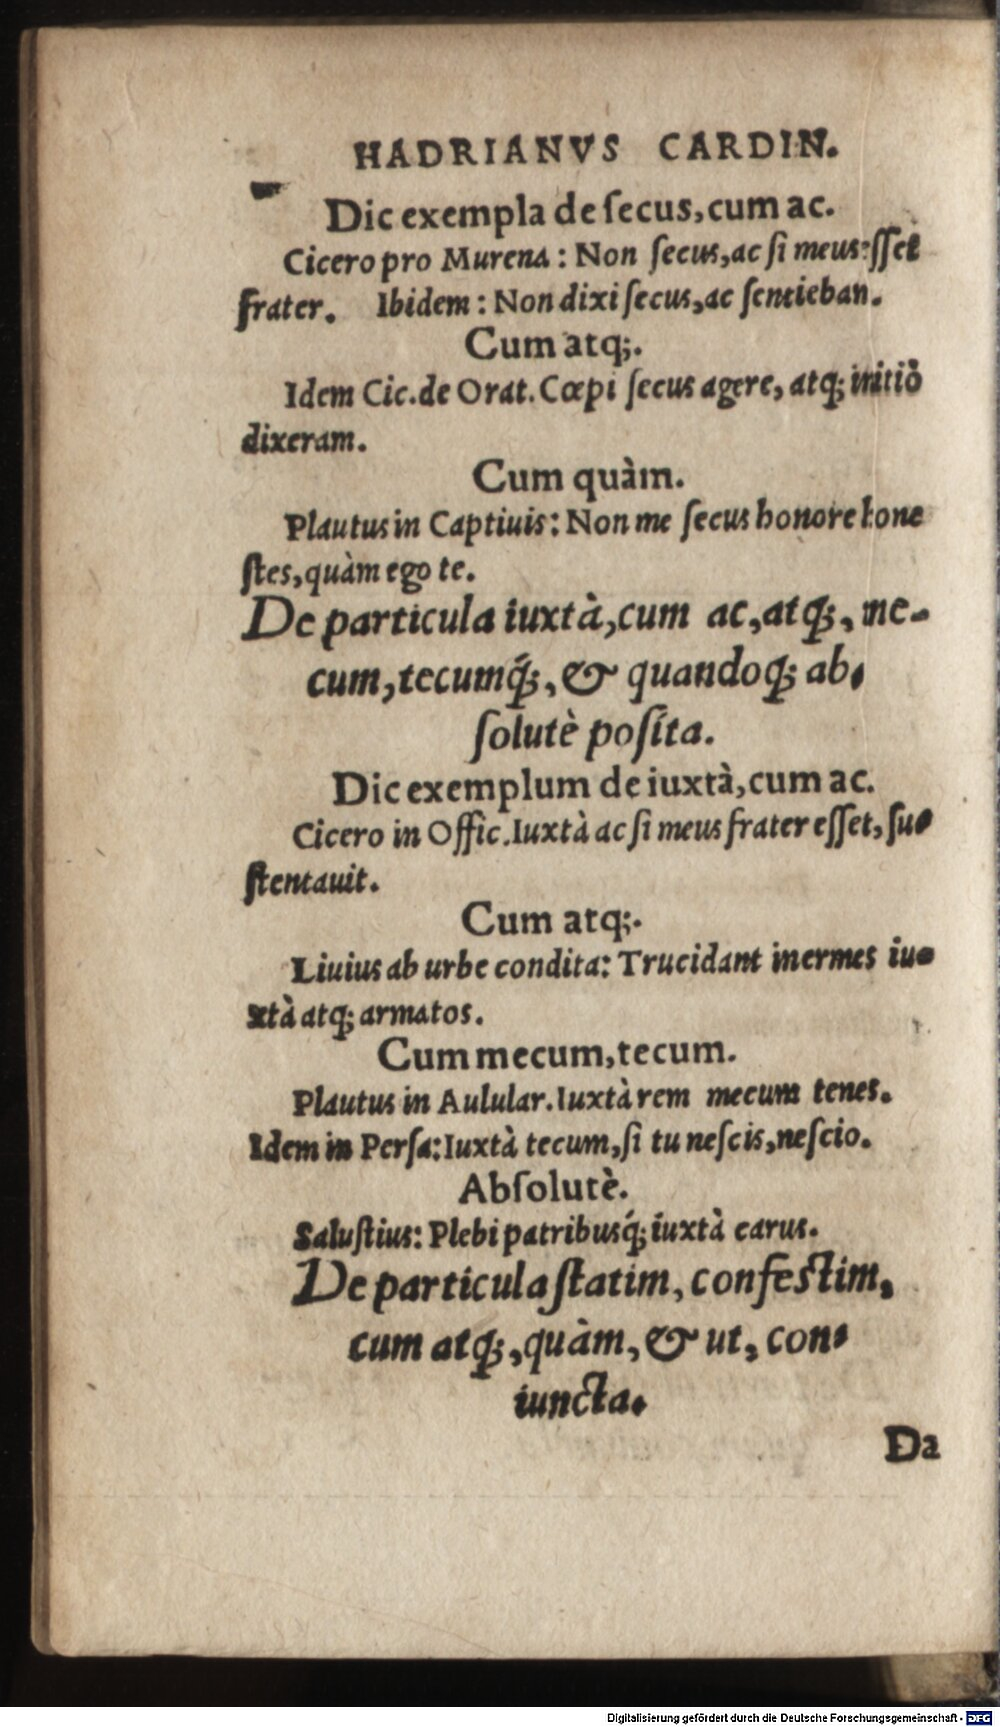 HADRIANVS CARDIN.
Dic exempla de ſecus, cum ac.
Cicero pro Murena: Non ſecus, ac ſi meus eſſet
frater. Ibidem: Non dixi ſecus, ac ſentieban.
Cum atq;.
Idem Cic. de Orat. Cœpi ſecus agere, atq; initiò
dixeram.
Cum quàm.
Plautus in Captiuis: Non me ſecus honore hone
ſtes, quàm ego te.
De particula iuxtà, cum ac, atq;, me-
cum, tecumq́;, & quandoq; ab-
ſolutè poſita.
Dic exemplum de iuxtà, cum ac.
Cicero in Offic. Iuxtà ac ſi meus frater eſſet, ſu-
ſtentauit.
Cum atq;.
Liuius ab urbe condita: Trucidant inermes iu-
xtà atq; armatos.
Cum mecum, tecum.
Plautus in Aulular. Iuxtà rem mecum tenes.
Idem in Perſa: Iuxtà tecum, ſi tu neſcis, neſcio.
Abſolutè.
Saluſtius: Plebi patribusq́; iuxtà carus.
De particula ſtatim, confeſtim,
cum atq;, quàm, & ut, con-
iuncta.
Da
Digitalisierung gefördert durch die Deutsche Forschungsgemeinschaft - DFG